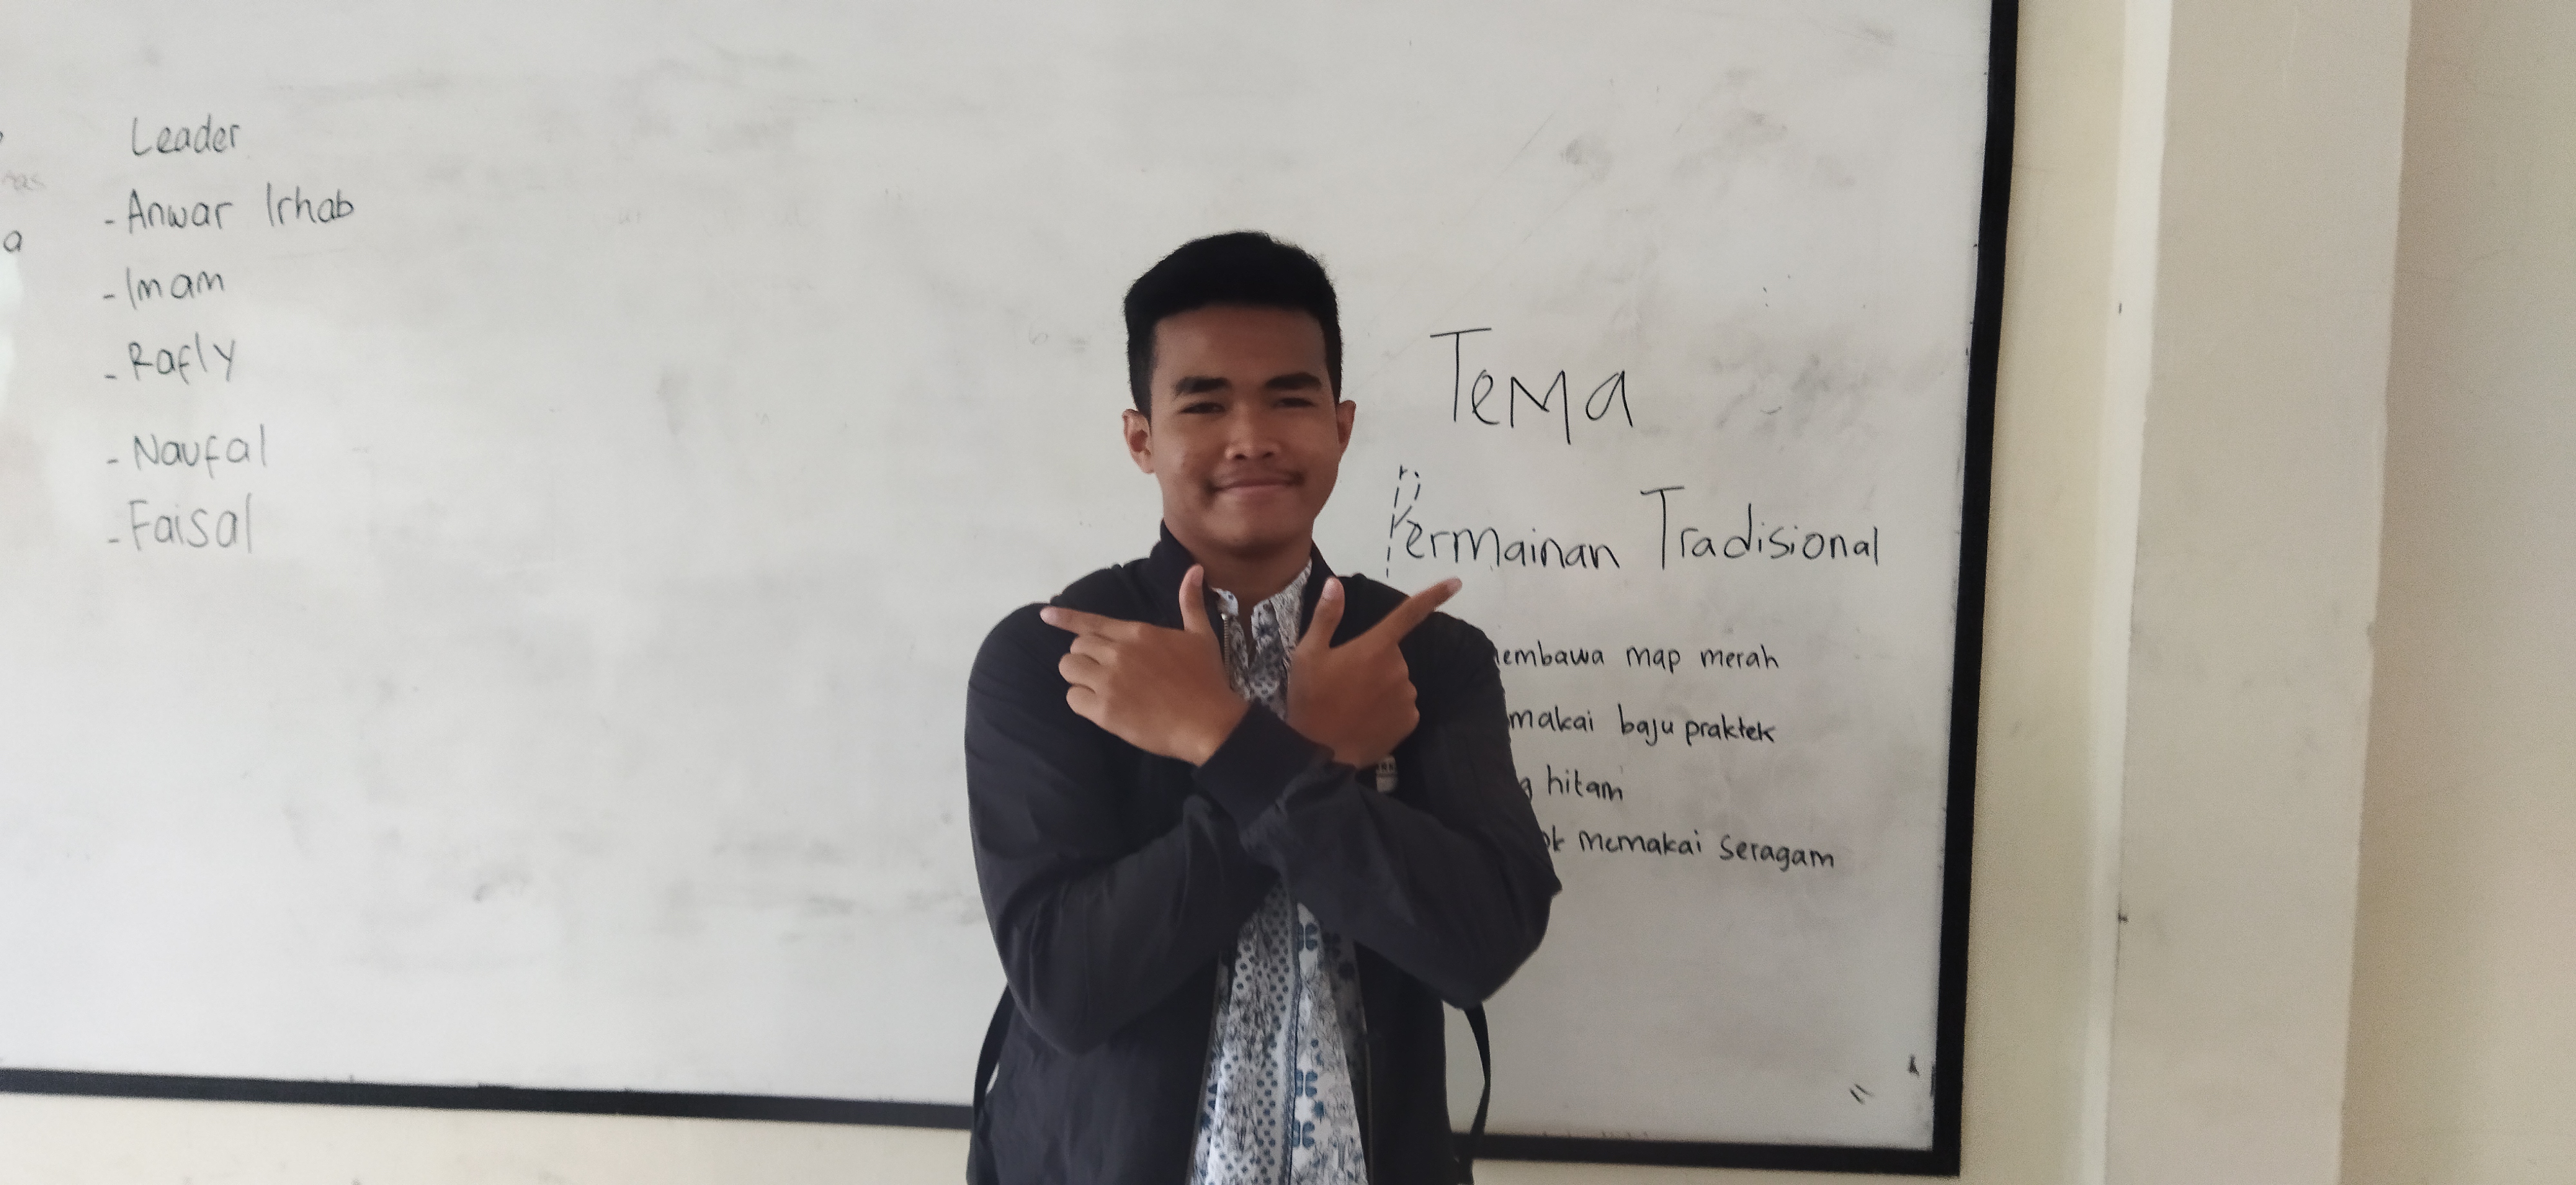 Leader
- Anwar Irhab
- Imam
- Rafly
- Naufal
- Faisal
Tema
Permainan Tradisional
map merah
baju praktek
hitam
memakai seragam